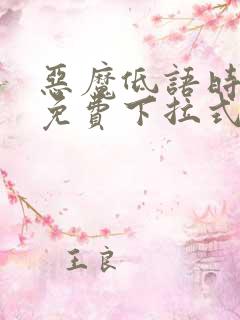 惡魔低語時
免費下拉式
王良